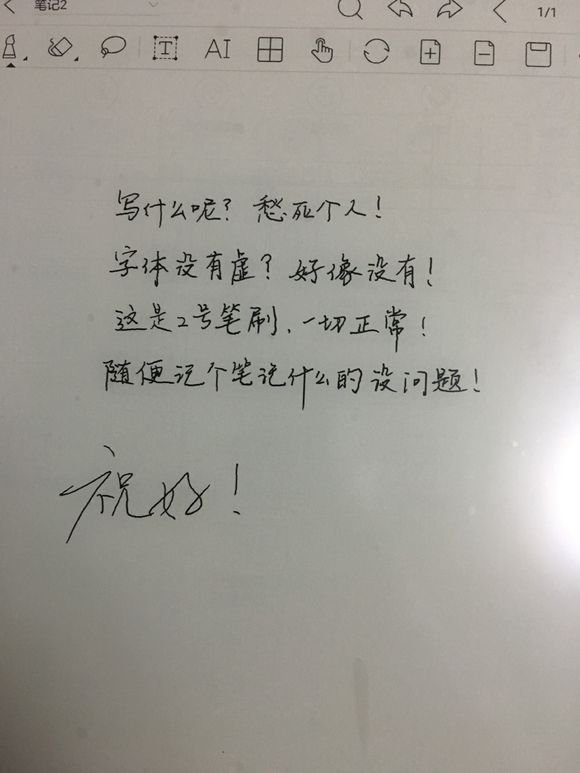 笔记2
1/1
T AI
写什么呢？愁死个人！
字体没有虚？好像没有！
这是2号笔刷、一切正常！
随便记个笔记什么的没问题！
祝好！